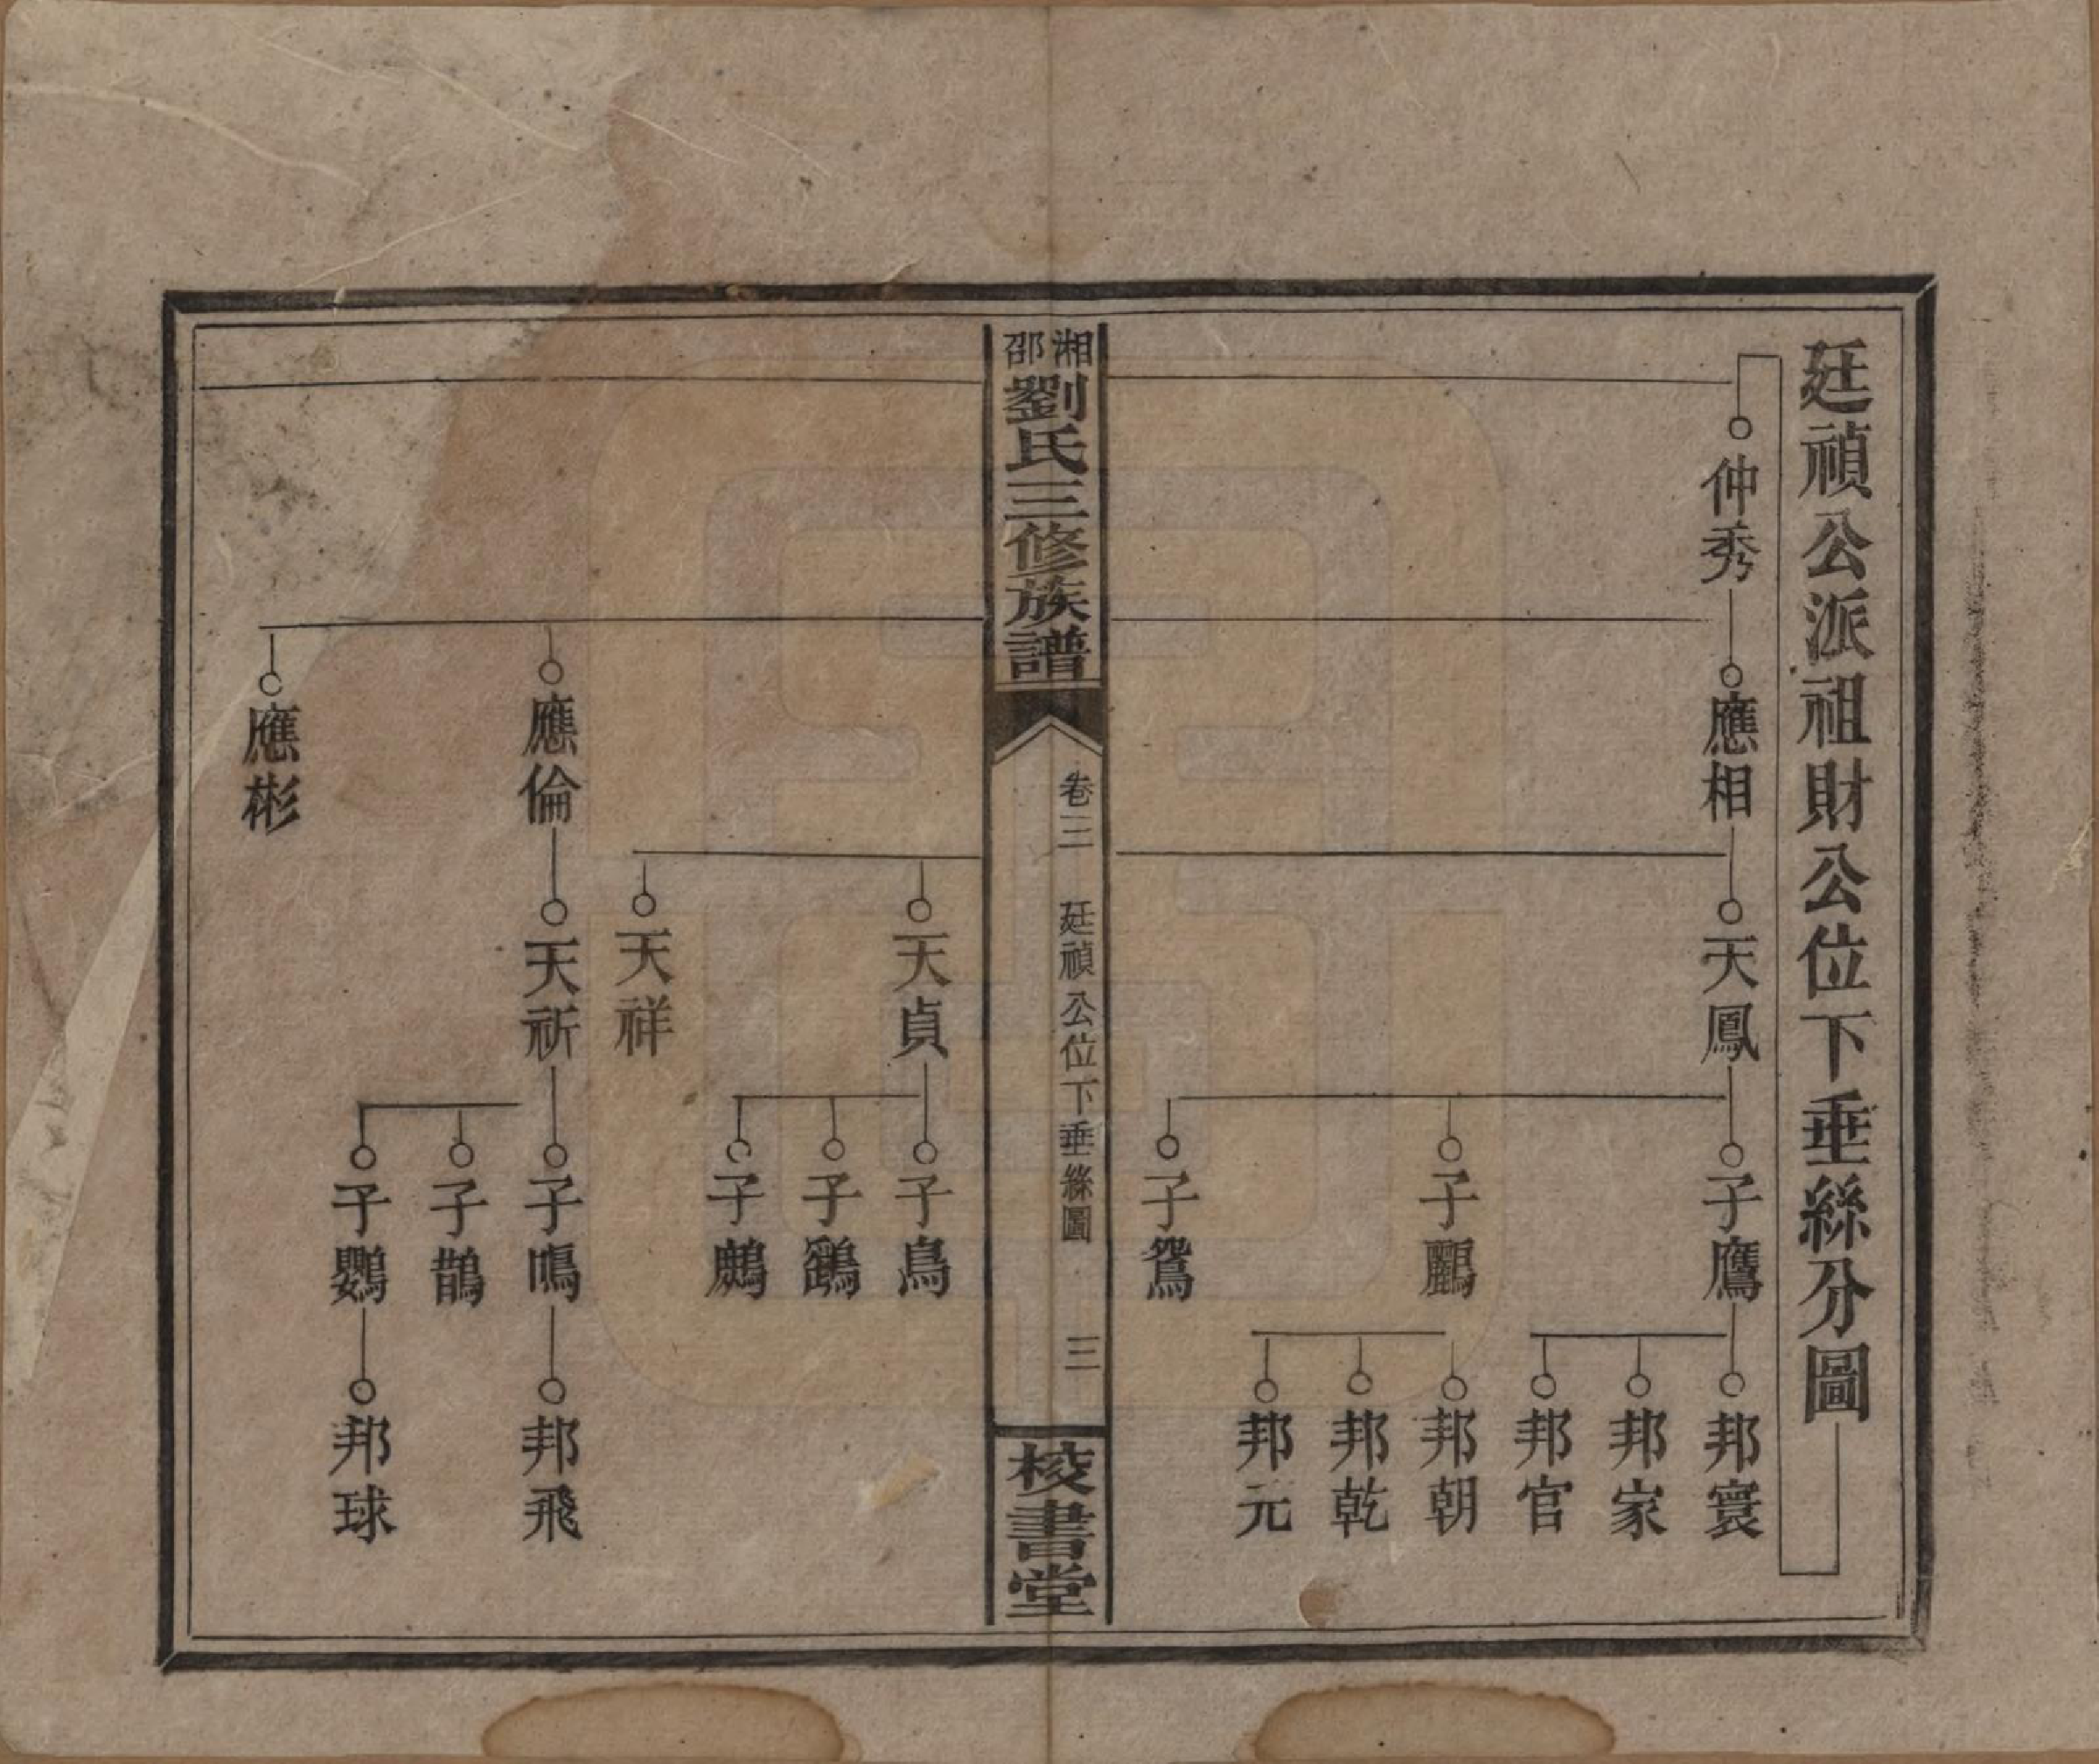 廷禎公派祖財公位下垂絲分圖
仲秀
應相
天鳳
子鷹
邦寰
邦家
邦官
子鸝
邦朝
邦乾
邦元
子鴛
湘邵劉氏三修族譜
卷三
廷禎公位下垂絲圖
三
校書堂
天貞
子鳥
子鷂
子鷓
天祥
應倫
天祈
子鳴
邦飛
子鵲
子鸚
邦球
應彬